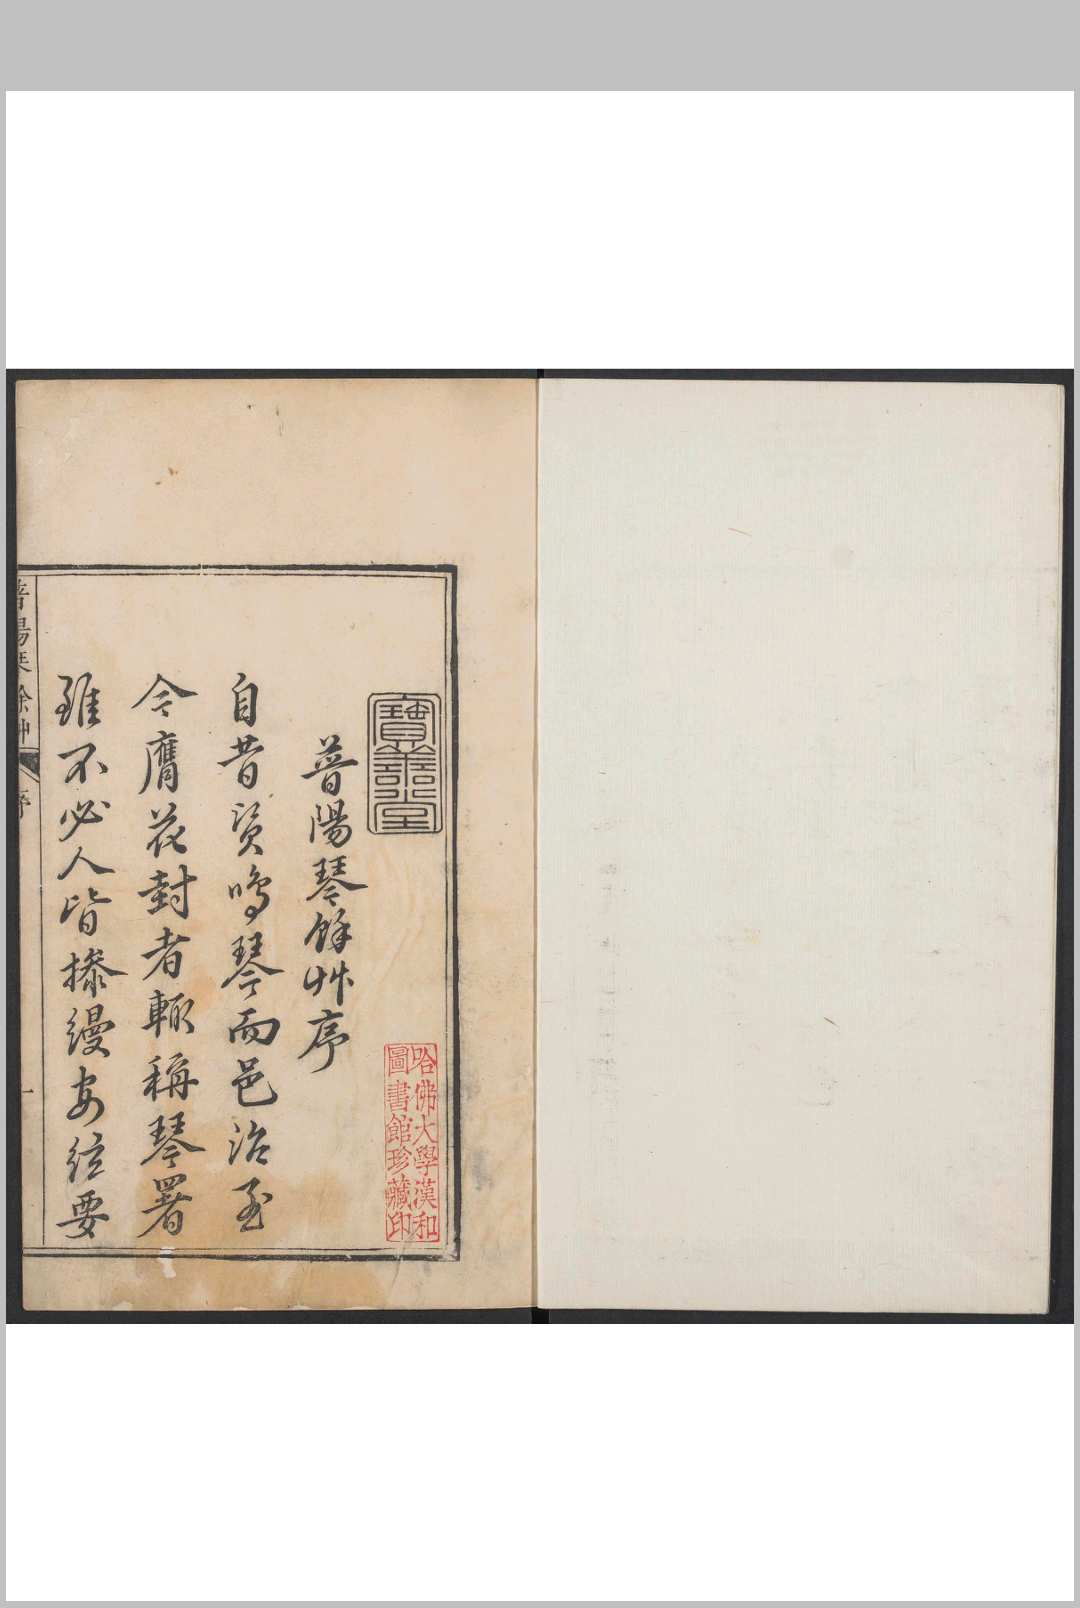 寶善堂
普陽琴餘艸序
自昔資鳴琴而邑治至
令膺花封者輒稱琴署
雖不必人皆操縵安絃要
哈佛大學漢和
圖書館珍藏印
序
一